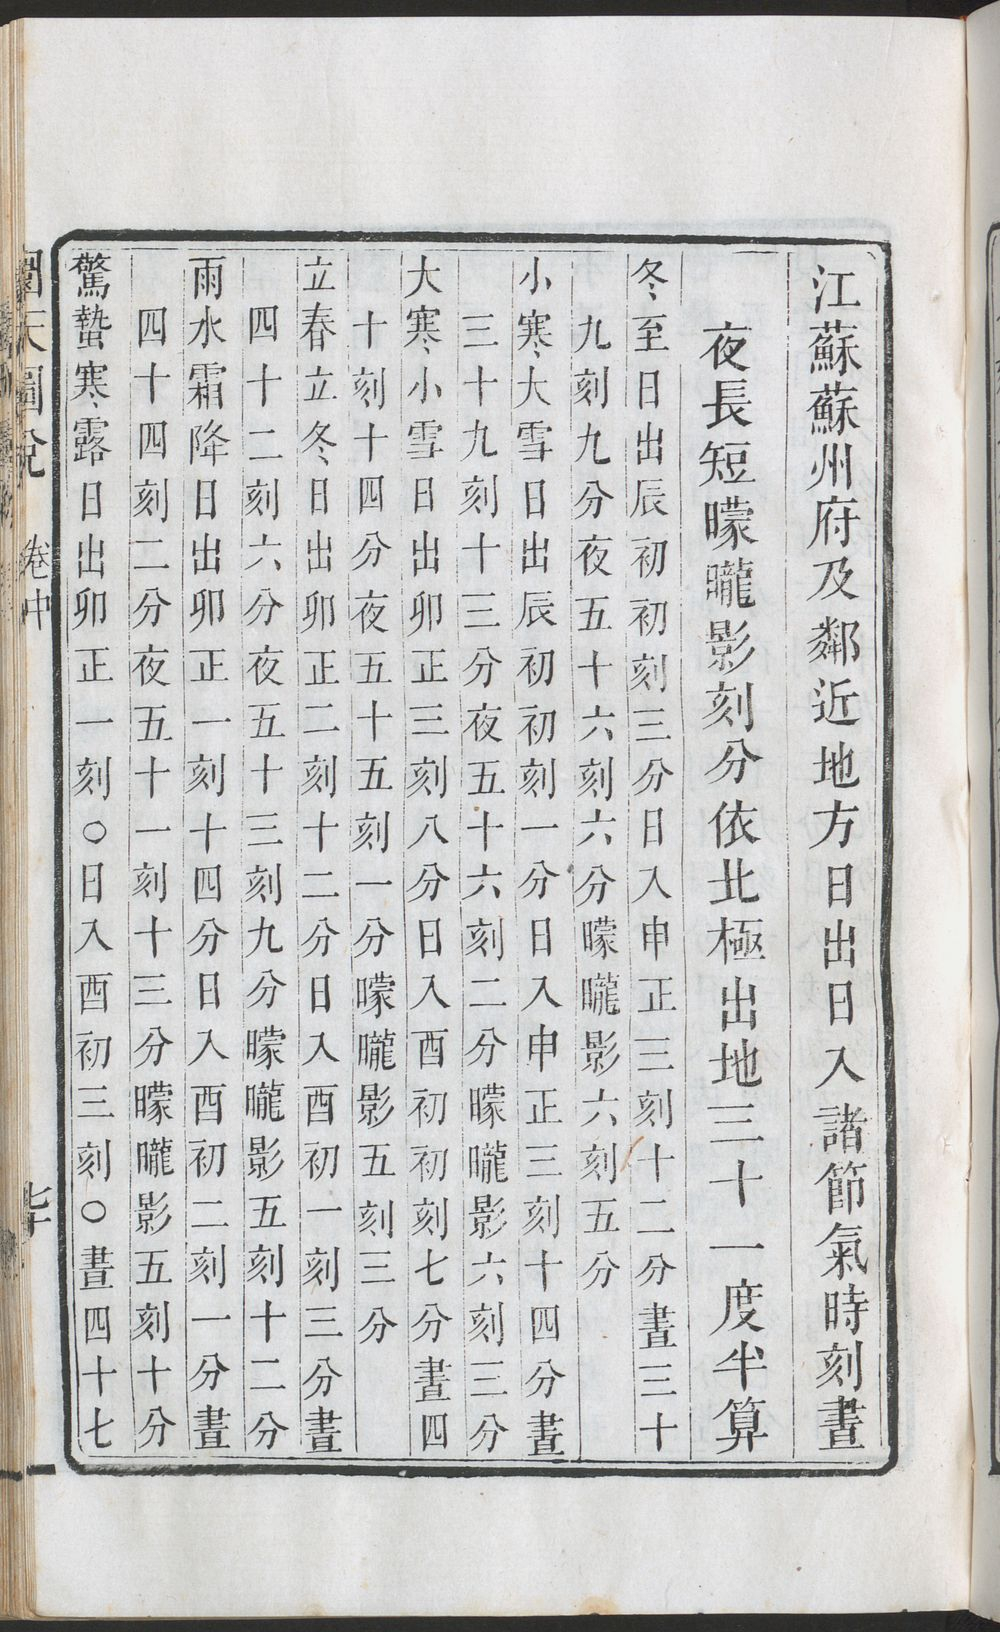 江蘇蘇州府及鄰近地方日出日入諸節氣時刻晝
夜長短曚曨影刻分依北極出地三十一度半算
冬至日出辰初初刻三分日入申正三刻十二分晝三十
九刻九分夜五十六刻六分曚曨影六刻五分
小寒大雪日出辰初初刻一分日入申正三刻十四分晝
三十九刻十三分夜五十六刻二分曚曨影六刻三分
大寒小雪日出卯正三刻八分日入酉初初刻七分晝四
十刻十四分夜五十五刻一分曚曨影五刻三分
立春立冬日出卯正二刻十二分日入酉初一刻三分晝
四十二刻六分夜五十三刻九分曚曨影五刻十二分
雨水霜降日出卯正一刻十四分日入酉初二刻一分晝
四十四刻二分夜五十一刻十三分曚曨影五刻十分
驚蟄寒露日出卯正一刻〇日入酉初三刻〇晝四十七
圜天圖說
卷中